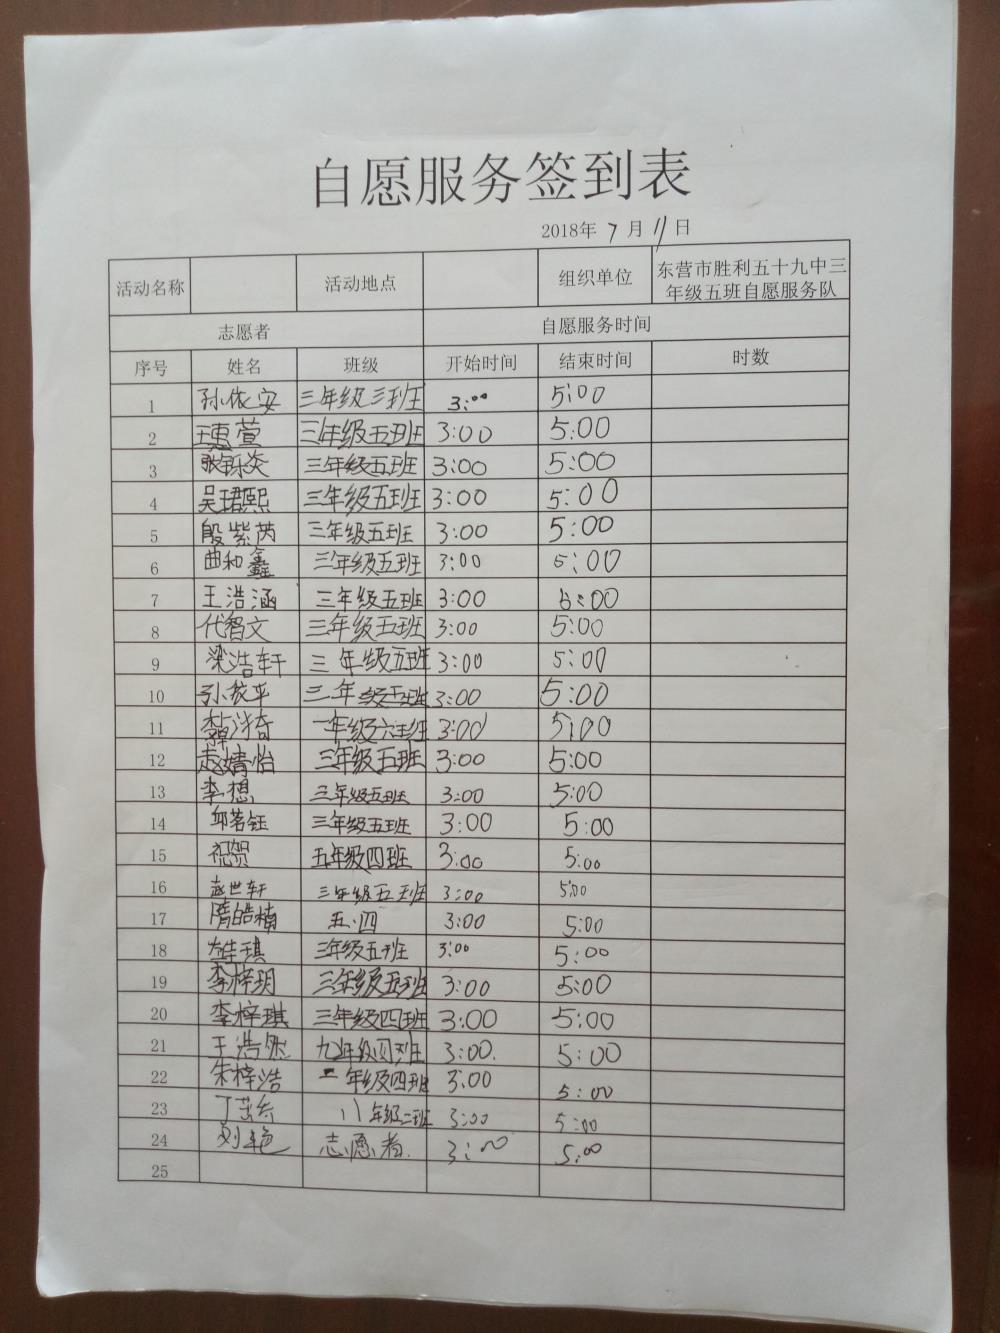 自愿服务签到表
2018年 7 月 11 日
活动名称 活动地点 组织单位 东营市胜利五十九中三
年级五班自愿服务队
志愿者 自愿服务时间
序号 姓名 班级 开始时间 结束时间 时数
1 孙依安 三年级三班 3:00 5:00
2 王惠萱 三年级五班 3:00 5:00
3 张铄炎 三年级五班 3:00 5:00
4 吴珺熙 三年级五班 3:00 5:00
5 殷紫芮 三年级五班 3:00 5:00
6 曲和鑫 三年级五班 3:00 5:00
7 王浩涵 三年级五班 3:00 5:00
8 代智文 三年级五班 3:00 5:00
9 梁浩轩 三年级五班 3:00 5:00
10 三年级五班 3:00 5:00
11 3:00 5:00
12 赵婧怡 三年级五班 3:00 5:00
13 李想 三年级五班 3:00 5:00
14 邱茗钰 三年级五班 3:00 5:00
15 祝贺 五年级四班 3:00 5:00
16 赵世轩 三年级五班 3:00 5:00
17 隋皓楠 五·四 3:00 5:00
18 三年级五班 3:00 5:00
19 李梓玥 三年级五班 3:00 5:00
20 李梓琪 三年级四班 3:00 5:00
21 王浩然 九年级四班 3:00. 5:00
22 朱梓浩 年级四班 3:00 5:00
23 八年级二班 3:00 5:00
24 刘艳 志愿者. 3:00 5:00
25